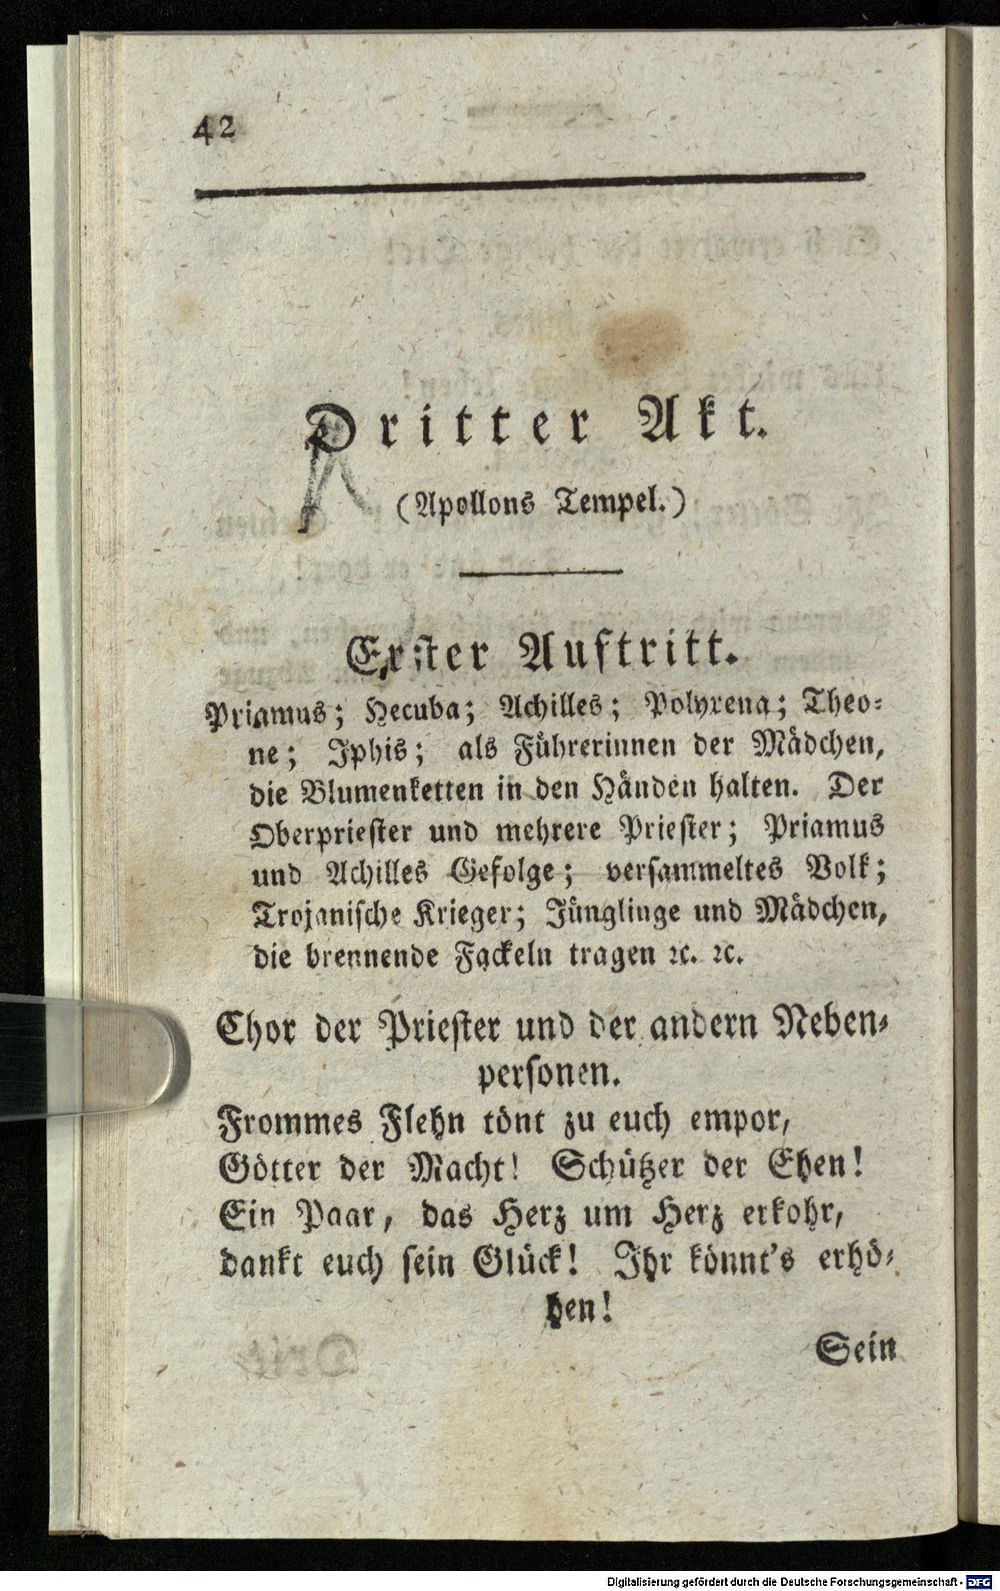 42
Dritter Akt.
(Apollons Tempel.)
Erster Auftritt.
Priamus; Hecuba; Achilles; Polyxena; Theo-
ne; Iphis; als Führerinnen der Mädchen,
die Blumenketten in den Händen halten. Der
Oberpriester und mehrere Priester; Priamus
und Achilles Gefolge; versammeltes Volk;
Trojanische Krieger; Jünglinge und Mädchen,
die brennende Fackeln tragen ꝛc. ꝛc.
Chor der Priester und der andern Neben-
personen.
Frommes Flehn tönt zu euch empor,
Götter der Macht! Schützer der Ehen!
Ein Paar, das Herz um Herz erkohr,
dankt euch sein Glück! Ihr könnt's erhö-
hen!
Sein
Digitalisierung gefördert durch die Deutsche Forschungsgemeinschaft - DFG